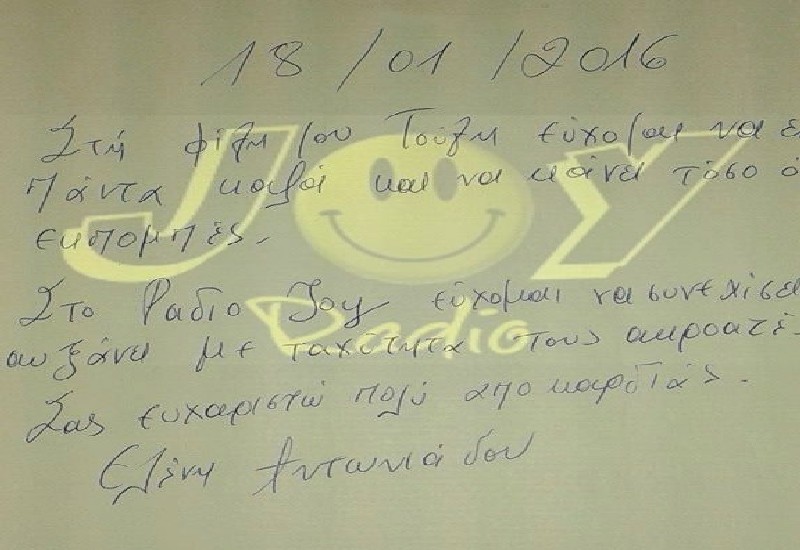 18/01/2016
Στη φίλη μου Τούλη εύχομαι να ε
πάντα καλά και να κάνει τόσο ό
εκπομπές.
Στο Ραδιο Joy εύχομαι να συνεχίσει
αυξάνει με ταχύτητα τους ακροατέ
Σας ευχαριστώ πολύ απο καρδιάς.
Ελένη Αντωνιάδου
JOY
Radio